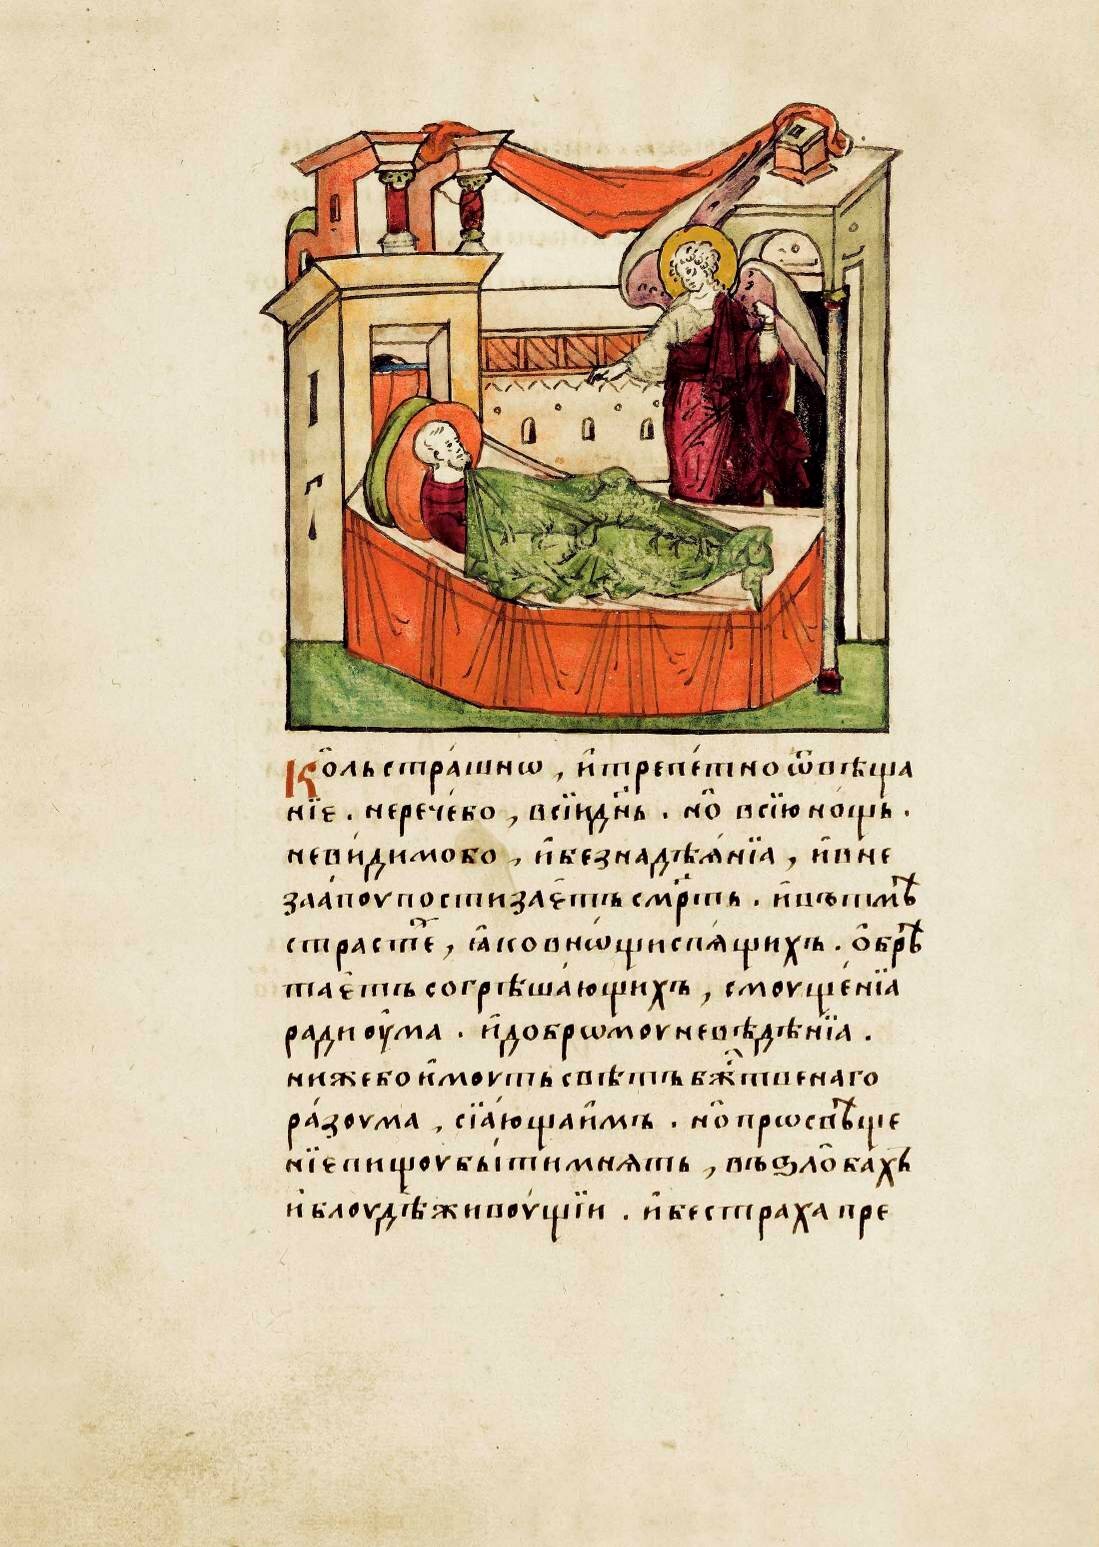 Ко̑ль стра́шнѡ , и҆ трепе́тно ѿвѣща
нїе . не рече́ бо , в сїи дн҃ь . но̑ в сїю но́щь .
неви́димо бо , и҆ без надѣѧ́нїа , и҆ вне
заа́поу постиза́етъ смр҃ть . и҆ въ тмѣ̾
страстнѣ̾е , ꙗ҆ко в нѡ́щи спѧ́щихъ . ѡ҆брѣ̾
та́етъ согрѣша́ющихъ , смоуще́нїа
ради оу҆ма . и҆ добромоу невѣ́дѣнїа .
ниже бо и҆моуть свѣтъ бж҃твенаго
ра́зоума , сїа́юща и҆мъ . но̑ прѡсвѣ̾ще
нїе пищоу бы́ти мнѧть , въ ѕло̑бахъ̾
и҆ блоудѣ живоу́щїи . и҆ бе страха пре